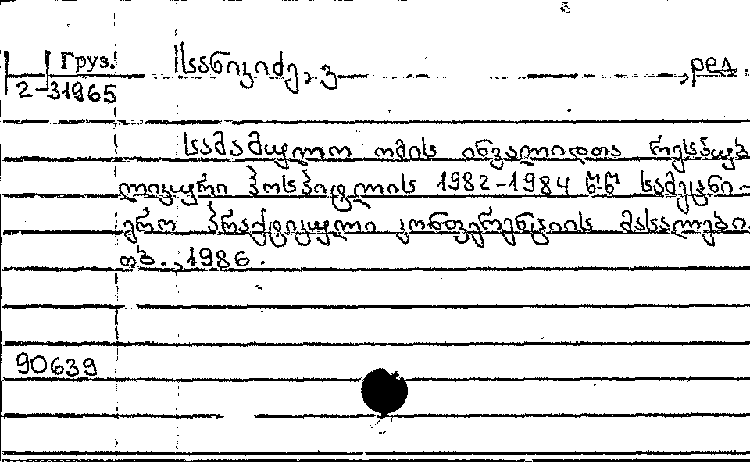 Груз. სანიკიძე, ვ. ред.
2-31965
სამამულო ომის ინვალიდთა რესპუბ
ლიკური ჰოსპიტლის 1982-1984 წ.წ სამეცნი-
ერო პრაქტიკული კონფერენციის მასალები.
თბ., 1986.
90639